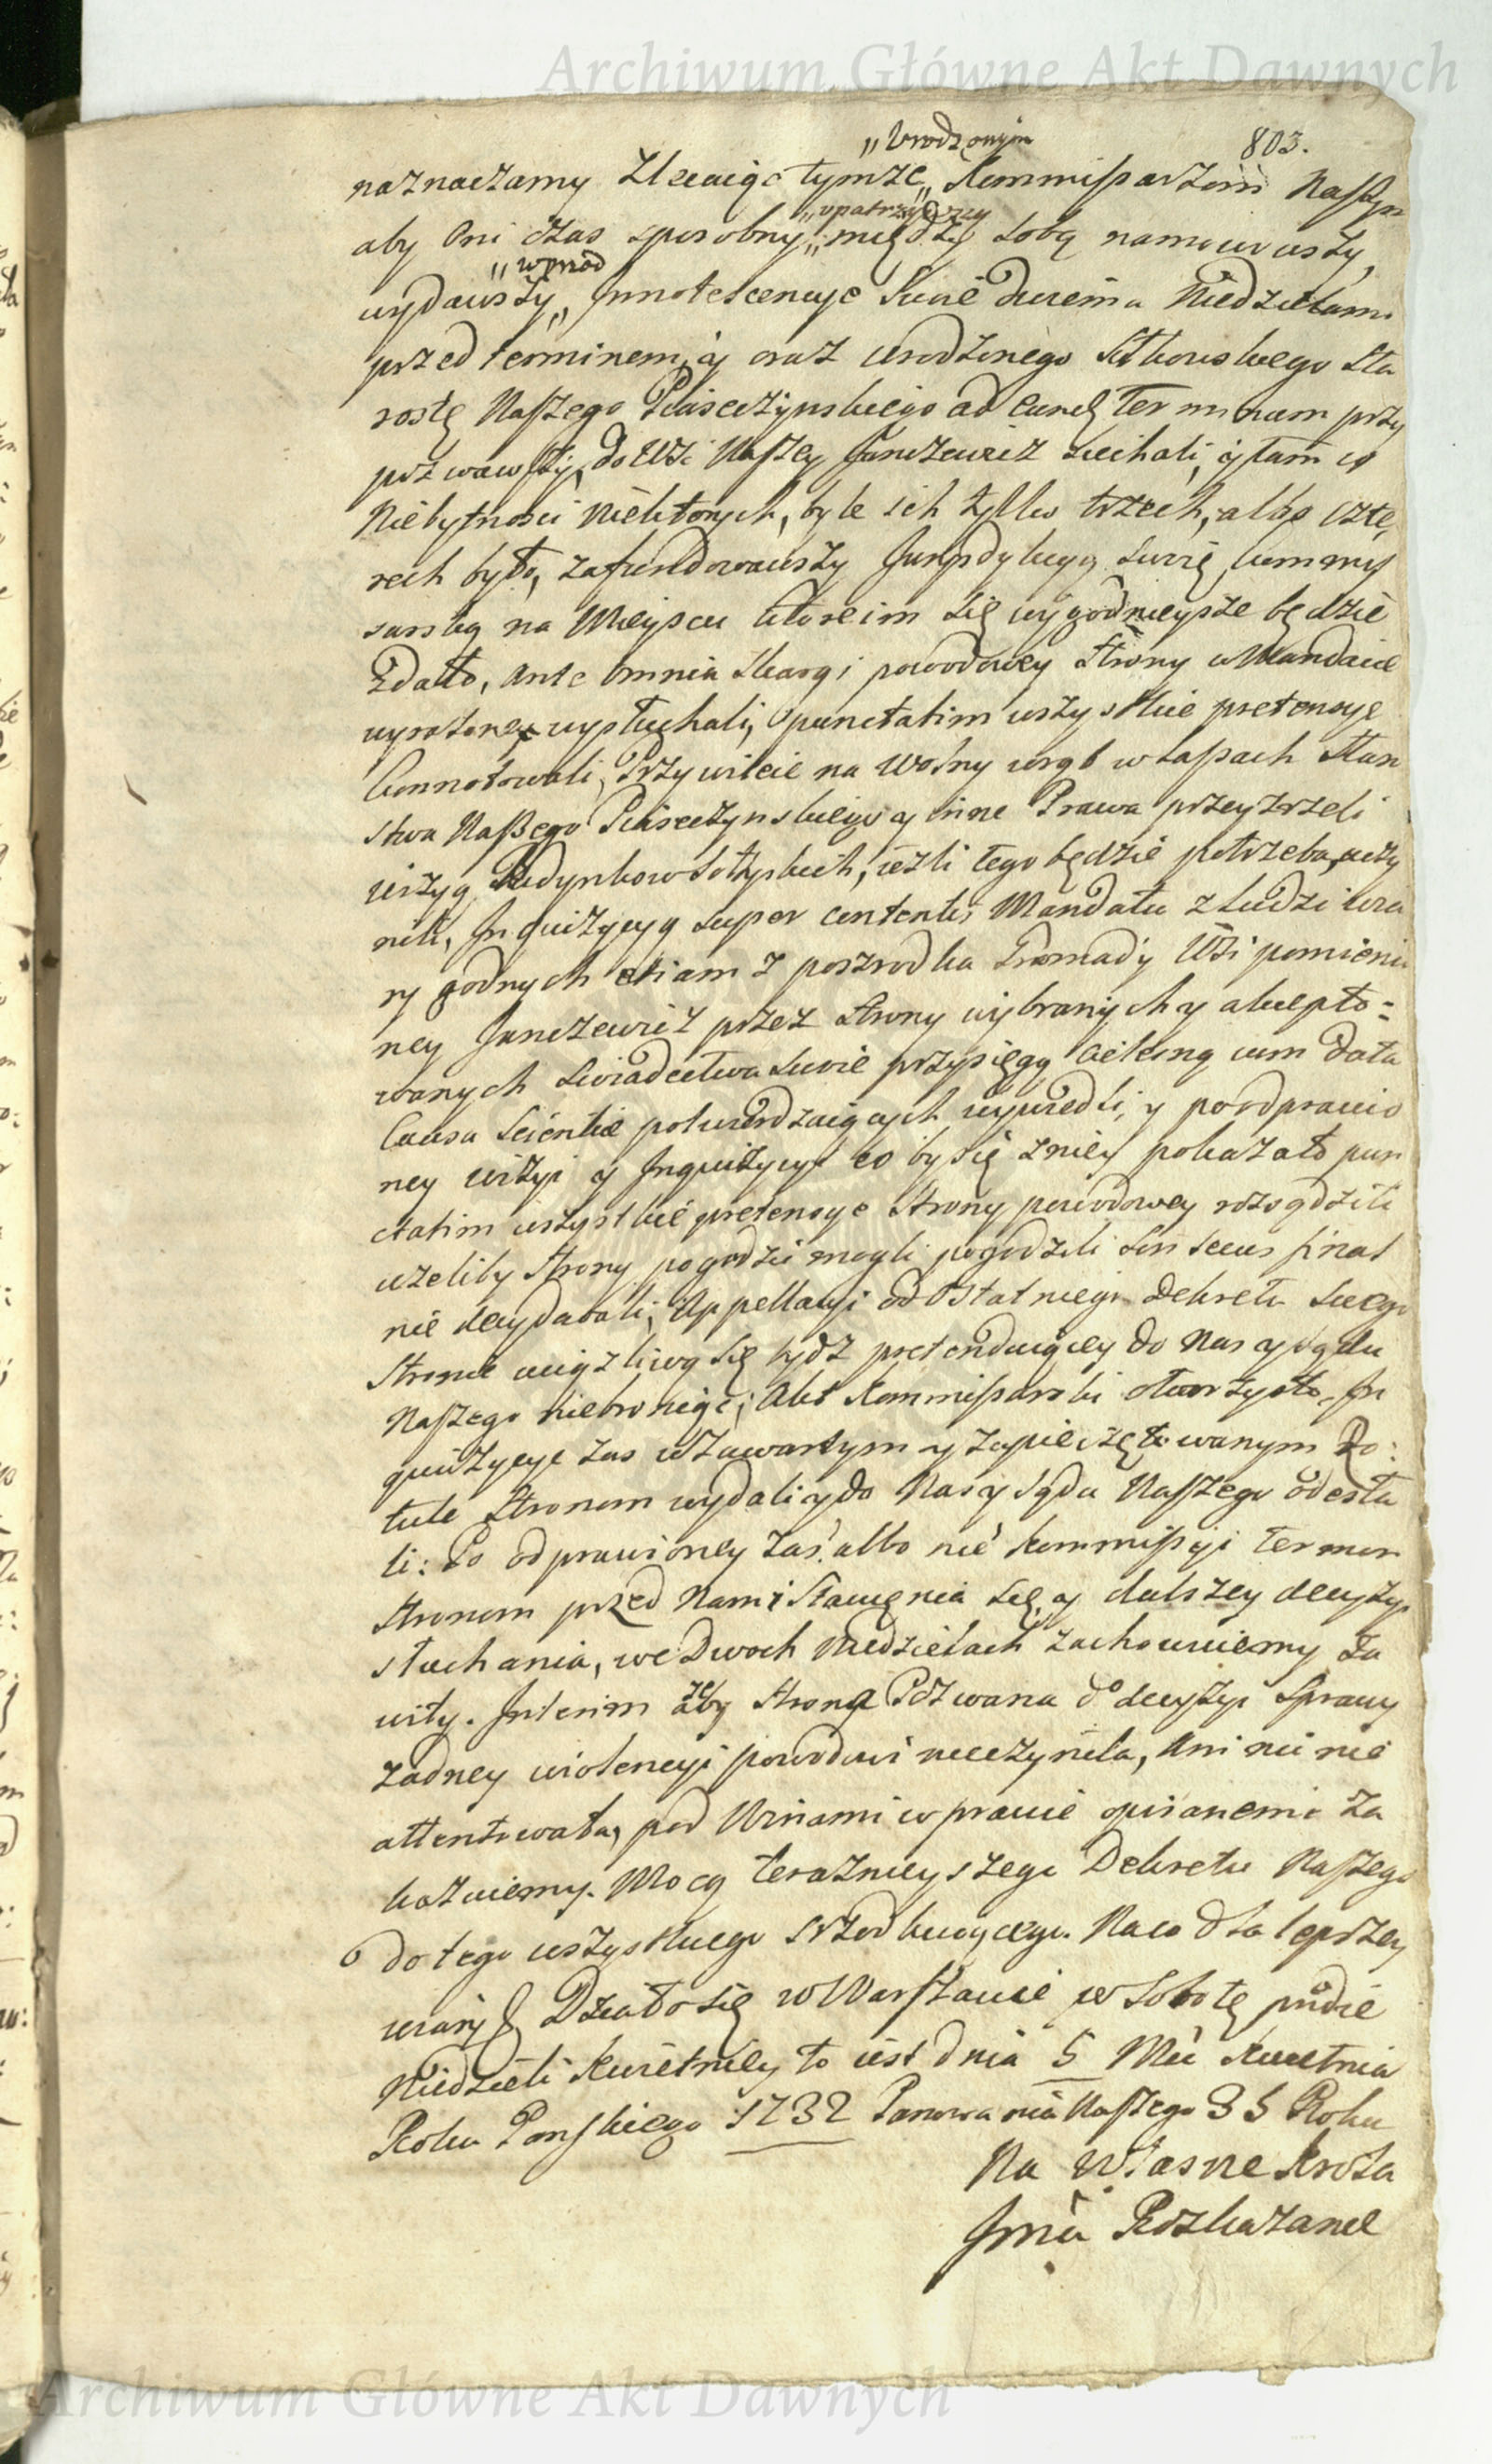 Archiwum Główne Akt Dawnych
803.
„Urodzonym
naznaczamy Zlecaiąc tymże„ Kommissarzom Naszym
„upatrzywszy
aby Oni czas sposobny„ między sobą namowiwszy,
„wprzod
wydawszy„ Innotescencye Swoie dwiema Niedzielami
przed terminem, y oraz urodzonego Sułkowskiego Sta
rostę Naszego Piaseczynskiego ad eund. Terminum przy
pozwawszy, do Wsi Naszey Janczewicz ziechali, y tam w
Niebytnosci Niektorych, byle ich tylko trzech, albo czte,
rech było, zafundowawszy Jurysdykcyą swoię kommis
sarską na Mieyscu ktore im się wygodnieysze będzie
Zdało, Ante Omnia Skargi powodowey Strony w Mandacie
wyrażoney wysłuchali, punctatim wszystkie pretensye
Connotowali, Przywileie na Wolny wrąb w Lasach Staro
stwa Naszego Piaseczynskiego y inne Prawa przeyzrzeli
wizyą Budynkow Sołtyskich, iezli tego będzie potrzeba, uczy
nili, Inquizycyą super contentis Mandatu z Ludzi wia
ry godnych etiam z poszrodka Gromady Wsi pomienio
ney Janczewicz przez Strony wybranych y akcepto=
wanych Swiadectwa Swoie przysięgą cielesną cum data
Causa Scientiae potwierdzaiących wywiedli, y po odprawio
ney wizyi y Inquizycyi co by się z niey pokazało pun
ctatim wszystkie pretensye Strony powodowey rozsądzili
iezeliby Strony pogodzic mogli pogodzili sin secus final
nie decydowali, Appellacyi od Ostatniego Dekretu Swego
Stronie uciązliwą się bydz pretenduiącey do Nas y Sądu
Naszego niebroniąc; Akt Kommissarski otworzysto, In
quizycye zas w zawartym y zapieczętowanym Ro:
tule Stronom wydali y do Nas y Sądu Naszego odesła
li: Po odprawioney zaś albo nie kommissyi termin
Stronom przed Nami Stawienia się y dalszey decyzyi
słuchania, we Dwoch Niedzielach zachowuiemy Za
wity. Interim aby Strona Pozwana do decyzyi Sprawy
żadney wiolencyi powodowi nieczyniła, Ani nic nie
attentowała, pod Winami w prawie opisanemi Za
kazuiemy. Mocą terazneyszego Dekretu Naszego
do tego wszystkiego srzodkuiącego. Na co dla lepszey
wiary Działo się w Warszawie w Sobotę przed
Niedzieli Kwietniey to iest dnia 5 Mca Kwietnia
Roku Panskiego 1732 Panowania Naszego 35 Roku
Na Własne Krola
Jmci Rozkazanie
Archiwum Główne Akt Dawnych